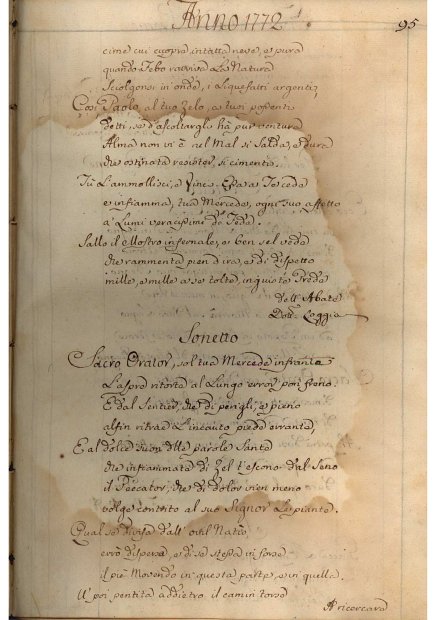 Anno 1772
95
cime cui copra intatta neve, e pura
quando Febo ravviva la Natura
Sciolgonsi in onda, i liquefatti argenti,
Così Paolo, al tuo Zelo, a tuoi possenti
detti, se d'ascoltargli hà pur ventura
Alma non vi è nel Mal si salda, e dura
che ostinata resister, si cimenti.
Tù l'ammollisci, e Vinci
e infiamma, tua Mercede, ogni suo affetto
a' Lumi veracissimi de
Sallo il Mostro infernale, e ben sel vede
che rammenta pien d'ira, e di dispetto
mille, e mille a se tolte, inquiete Prede
dell' Abate
Dott. Loggia
Sonetto
Sacro Orator, sol tua Mercede infranta
La prd ritorta al Lungo error pon freno
E dal Sentier, che di perigli, e pieno
alfin ritrae l'incauto piede errante,
E al dolce suon delle parole Sante
che infiammate di Zel t'escono dal Seno
il Peccator, che di dolor vien meno
volge contrito al suo Signor le piante.
Qual se divisa dall' ovil Natio,
errò dispersa, e di se stessa in forse
il piè Movendo in questa parte, e in quella.
U' poi pentita addietro il camin torse
A ricercare